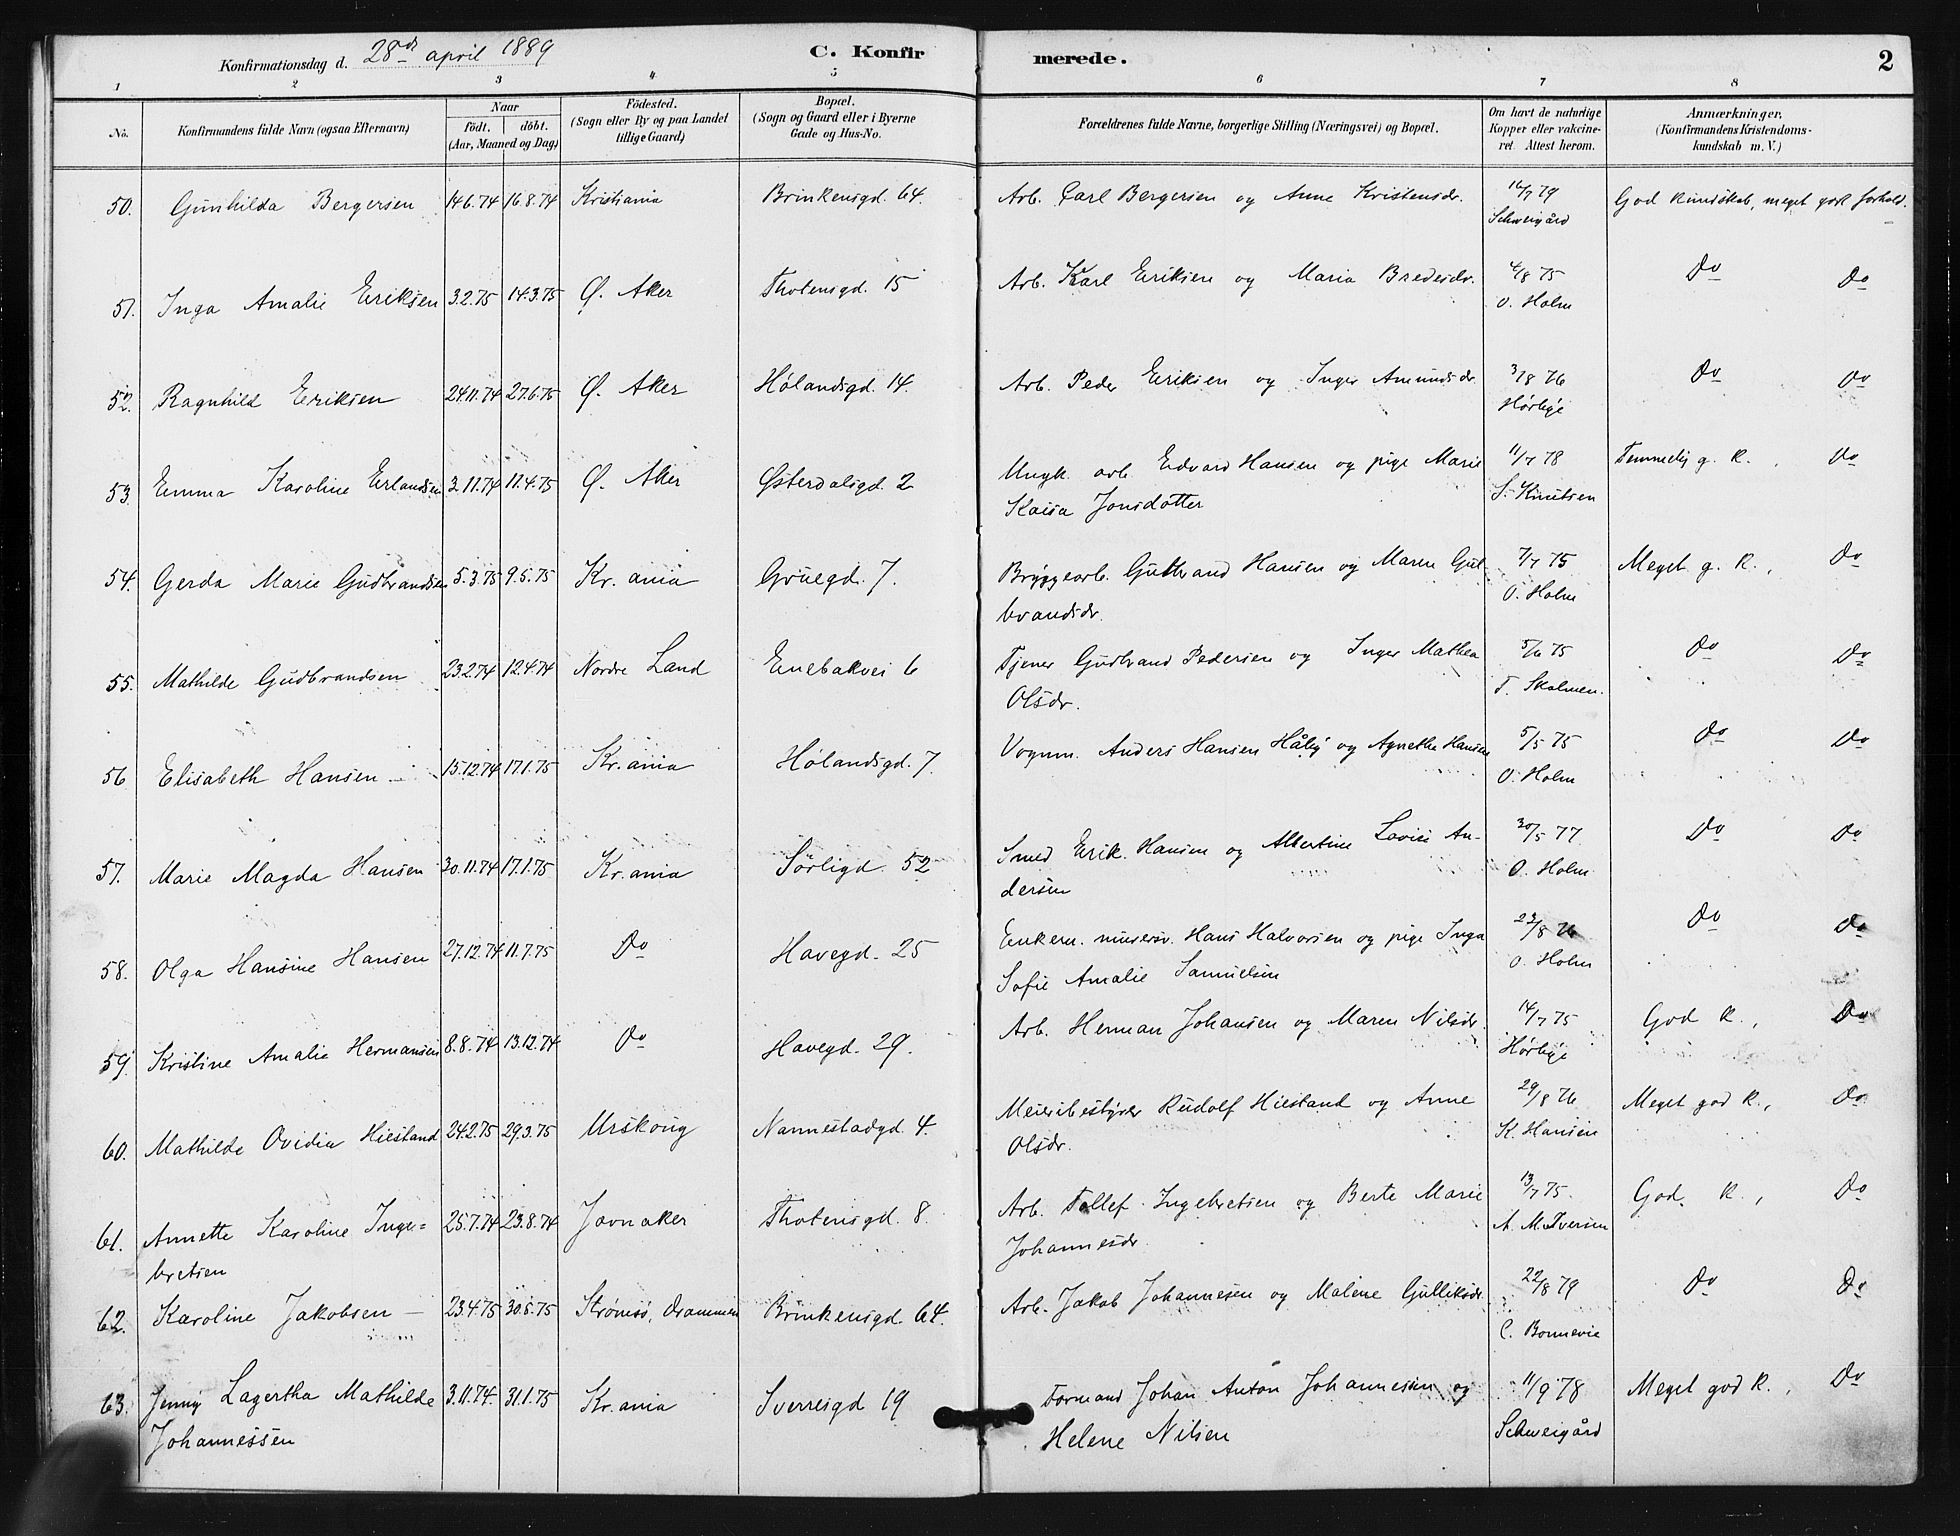 Konfirmationsdag d. 28de april 1889 C. Konfirmerede. 2
1 2 3 4 5 6 7 8
No. Konfirmandens fulde Navn (ogsaa Efternavn) Naar født. døbt. (Aar, Maaned og Dag) Fødested. (Sogn eller By og paa Landet tillige Gaard) Bopæl. (Sogn og Gaard eller i Byerne Gade og Hus-No. Forældrenes fulde Navne, borgerlige Stilling (Næringsvei) og Bopæl. Om havt de naturlige Kopper eller vakcineret. Attest herom. Anmærkninger, (Konfirmandens Kristendomskundskab m. V.)
50. Gunhilda Bergersen 14.6.74 16.8.74 Kristiania Brinkensgd. 64. Arb. Carl Bergersen og Anne Kristensdr. 79 God kundskab, meget godt forhold.
Schweigård
51. Inga Amalie Eriksen 3.2.75 14.3.75 Ø. Aker Thotensgd. 15 Arb. Karl Eriksen og Maria Bredesdr. 4/8 75 Do Do
O. Holm
52. Ragnhild Eriksen 24.11.74 27.6.75 Ø. Aker Hølandsgd. 14. Arb. Peder Eriksen og Inger Amundsdr. 3/8 76 Do Do
Hørbye
53 Emma Karoline Erlandsen 3.11.74 11.4.75 Ø. Aker Østerdalsgd. 2 Ungk. arb. Edvard Hansen og pige Marie 11/7 78 Temmelig g. K. , Do
Kaisa Jonsdotter S. Knutsen
54. Gerda Marie Gudbrandsen 5.3.75 9.5.75 Kr.ania Grüegd. 7. Bryggearb. Gutbrand Hansen og Maren Gul 7/7 75 Meget g. K. , Do
brandsdr. O. Holm
55. Mathilde Gudbrandsen 23.2.74 12.4.74 Nordre Land Enebakvei 6 Tjener Gudbrand Pedersen og Inger Mathea 5/6 75 Do Do
Olsdr. T. Skalmen.
56 Elisabeth Hansen 15.12.74 17.1.75 Kr.ania Hølandsgd. 7. Vognm. Anders Hansen Håby og Agnethe Hansen 5/5 75 Do Do
O. Holm
57. Marie Magda Hansen 30.11.74 17.1.75 Kr.ania Sørligd. 52 Smed Erik Hansen og Albertine Lovise An- 30/5 77 Do Do
dersen O. Holm
58. Olga Hansine Hansen 27.12.74 11.7.75 Do Havegd. 25 Enkem. murersv. Hans Halvorsen og pige Inga 23/8 76 Do Do
Sofie Amalie Samuelsen O. Holm
59. Kristine Amalie Hermansen 8.8.74 13.12.74 Do Havegd. 29. Arb. Herman Johansen og Maren Nilsdr. 14/7 75 God K. , Do
Hørbye
60. Mathilde Ovidia Hiestand 24.2.75 29.3.75 Urskoug Nannestadgd. 4. Meieribestyrer Rudolf Hiestand og Anne 29/8 76 Meget god K. , Do
Olsdr. K. Hansen
61. Annette Karoline Inge= 25.7.74 23.8.74 Jævnaker Thotensgd. 8. Arb. Tollef Ingebretsen og Berte Marie 13/7 75. God K. , Do
bretsen Johannesdr. A. M. Iversen
62. Karoline Jakobsen — 23.4.75 30.5.75 Strømsö, Drammen Brinkensgd. 64. Arb. Jakob Johannesen og Malene Gulliksdr. 22/8 79 Do Do
C. Bonnevie
63. Jenny Lagertha Mathilde 3.11.74. 31.1.75 Kr.ania Sverresgd 19 Formand Johan Anton Johannesen og 11/9 78 Meget god K. , Do
Johannessen Helene Nilsen Schweigård